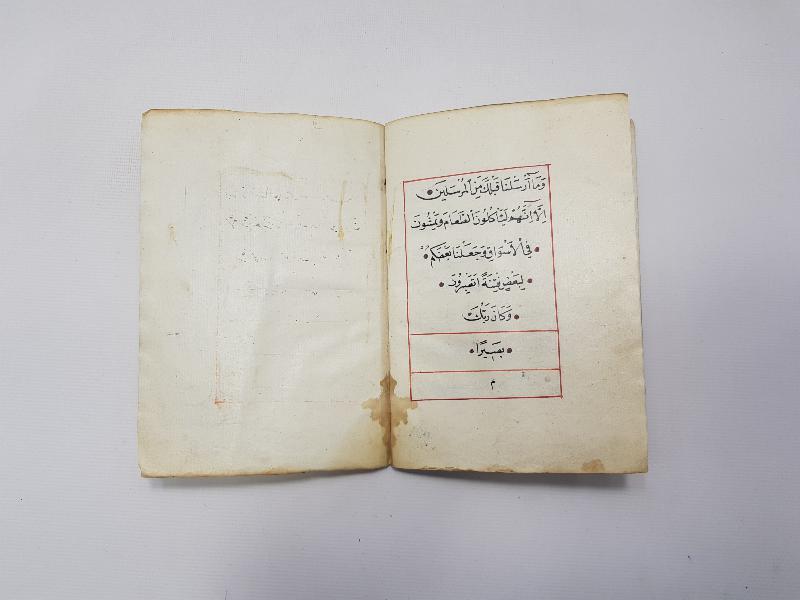 وَمَا أَرْسَلْنَا قَبْلَكَ مِنَ الْمُرْسَلِينَ
اِلَّا اِنَّهُمْ لَيَأْكُلُونَ الطَّعَامَ وَيَمْشُونَ
فِي الْاَسْوَاقِ وَجَعَلْنَا بَعْضَكُمْ
لِبَعْضٍ فِتْنَةً اَتَصْبِرُونَ
وَكَانَ رَبُّكَ
بَصِيرًا
م